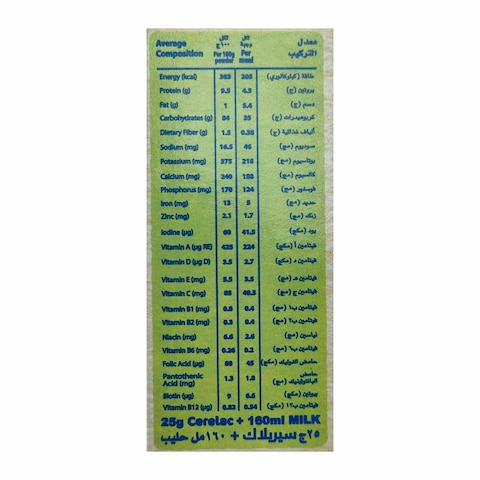 Average Composition Per 100g powder لكل ١٠٠ج Per meal لكل وجبة معدل التركيب
Energy (kcal) 383 205 طاقة (كيلوكالوري)
Protein (g) 9.5 4.3 بروتين (ج)
Fat (g) 1 5.4 دسم (ج)
Carbohydrates (g) 84 35 كربوهيدرات (ج)
Dietary Fiber (g) 1.5 0.38 ألياف غذائية (ج)
Sodium (mg) 16.5 46 صوديوم (مج)
Potassium (mg) 375 218 بوتاسيوم (مج)
Calcium (mg) 240 188 كالسيوم (مج)
Phosphorus (mg) 170 124 فوسفور (مج)
Iron (mg) 13 5 حديد (مج)
Zinc (mg) 2.1 1.7 زنك (مج)
Iodine (µg) 60 41.5 يود (مكج)
Vitamin A (µg RE) 425 224 فيتامين أ (مكج)
Vitamin D (µg D) 3.5 2.7 فيتامين د (مكج)
Vitamin E (mg) 5.5 3.5 فيتامين هـ (مج)
Vitamin C (mg) 88 40.3 فيتامين ج (مج)
Vitamin B1 (mg) 0.8 0.4 فيتامين ب١ (مج)
Vitamin B2 (mg) 0.3 0.4 فيتامين ب٢ (مج)
Niacin (mg) 6.6 2.6 نياسين (مج)
Vitamin B6 (mg) 0.26 0.2 فيتامين ب٦ (مج)
Folic Acid (µg) 88 45 حامض الفوليك (مكج)
Pantothenic Acid (mg) 1.3 1.8 حامض البانتوثينيك (مج)
Biotin (µg) 9 6.6 بيوتين (مكج)
Vitamin B12 (µg) 0.82 0.54 فيتامين ب١٢ (مكج)
25g Cerelac + 160ml MILK
٢٥ج سيريلاك + ١٦٠مل حليب